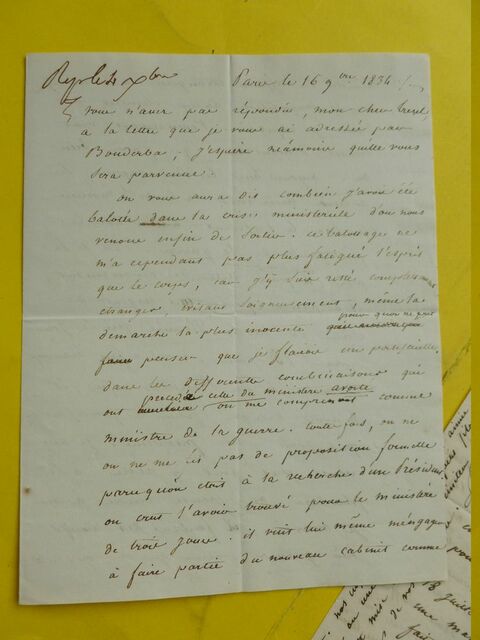 Rep. le 4 Xbre
Paris le 16 9bre 1834
vous n'avez pas répondu, mon cher
à la lettre que je vous ai adressée par
Bonderba, j'espère néanmoins qu'elle vous
sera parvenue.
on vous aura dit combien j'avois été
balotté dans la crise ministerielle d'où nous
venons enfin de sortir. ce balottage ne
m'a cependant pas plus fatigué l'esprit
que le corps, car j'y suis resté complettement
étranger, évitant soigneusement, même la
démarche la plus innocente pour qu'on ne put
penser que je flairois un portefeuille.
dans les differentes combinaisons qui
ont précédé celle du ministère avorté
on me comprenoit comme
ministre de la guerre. toutefois, on ne
on ne me fit pas de proposition formelle
parcequ'on étoit à la recherche d'un Président
on crut l'avoir trouvé pour le ministère
de trois jours. il vint lui même m'engager
à faire partie du nouveau cabinet comme